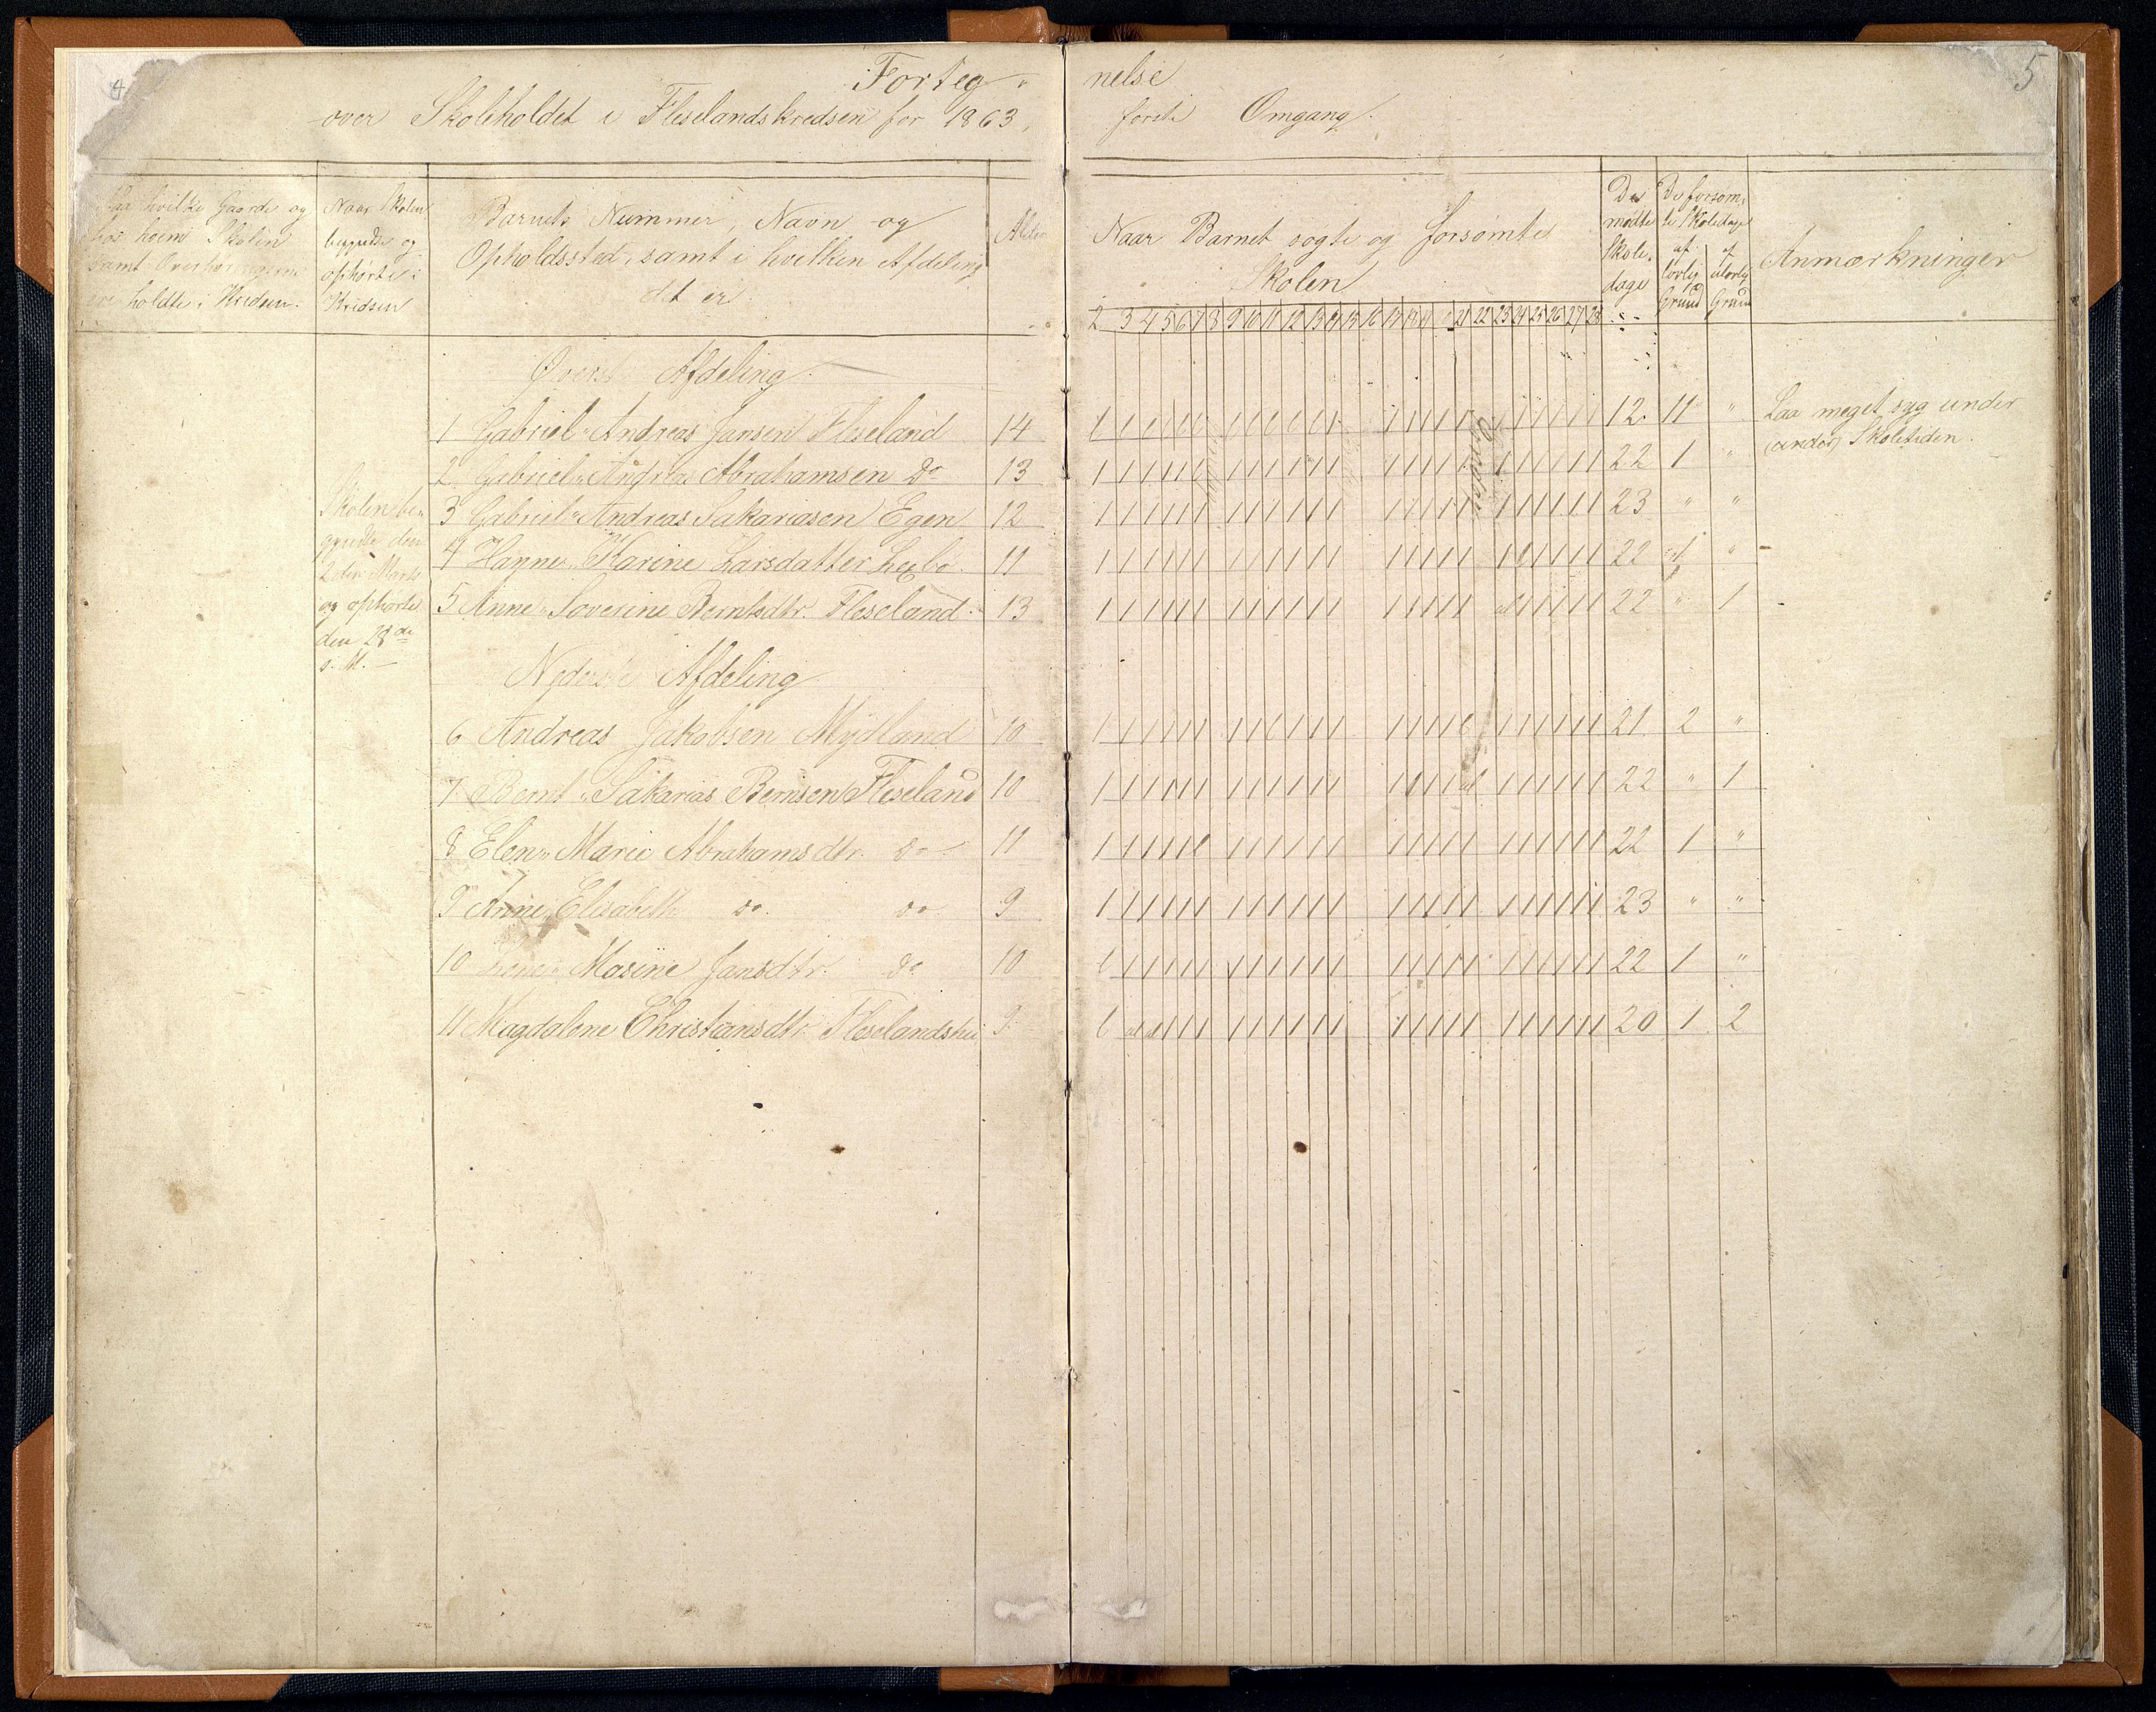 4
5
Forteg-
nelse
over Skoleholdet i Fleselandskredsen for 1863,
første Omgang.
Paa hvilke Gaarde og
hos hvem Skolen
samt Overhøringerne
ere holdte i Kredsen.
Naar Skolen
begyndte og
ophørte i
Kredsen
Barnets Nummer, Navn og
Opholdssted, samt i hvilken Afdeling
det er.
Alder
Naar Barnet søgte og forsømte
Skolen
2 3 4 5 6 7 8 9 10 11 12 13 14 15 16 17 18 19 21 22 23 24 25 26 27 28
De
mødte
Skole-
dage
De forsøm-
te Skoledage
af
lovlig
Grund
af
ulovlig
Grund
Anmærkninger
Øverste Afdeling.
1 Gabriel Andreas Jansen Fleseland 14 12 11 "
Laa meget syg under
Skoletiden.
2 Gabriel Andreas Abrahamsen Do 13 22 1 "
3 Gabriel Andreas Sakariasen Egen 12 23 " "
4 Hanne Marine Larsdatter 11 22 1 "
5 Anne Severine Berntsdtr. Fleseland. 13 22 " 1
Skolen be-
gyndte den
2den Marts
og ophørte
den 28de
s. M. —
Nederste Afdeling
6 Andreas Jakobsen Mydland 10 21 2 "
7 Bernt Sakarias Bernsen Fleseland 10 22 " 1
8 Elen Marie Abrahamsdtr. Do 11 22 1 "
9 Anne Elisabeth do. do 9 23 " "
10 Masine Jansdtr. Do 10 22 1 "
11 Magdalene Christiansdtr. 9 20 1 2